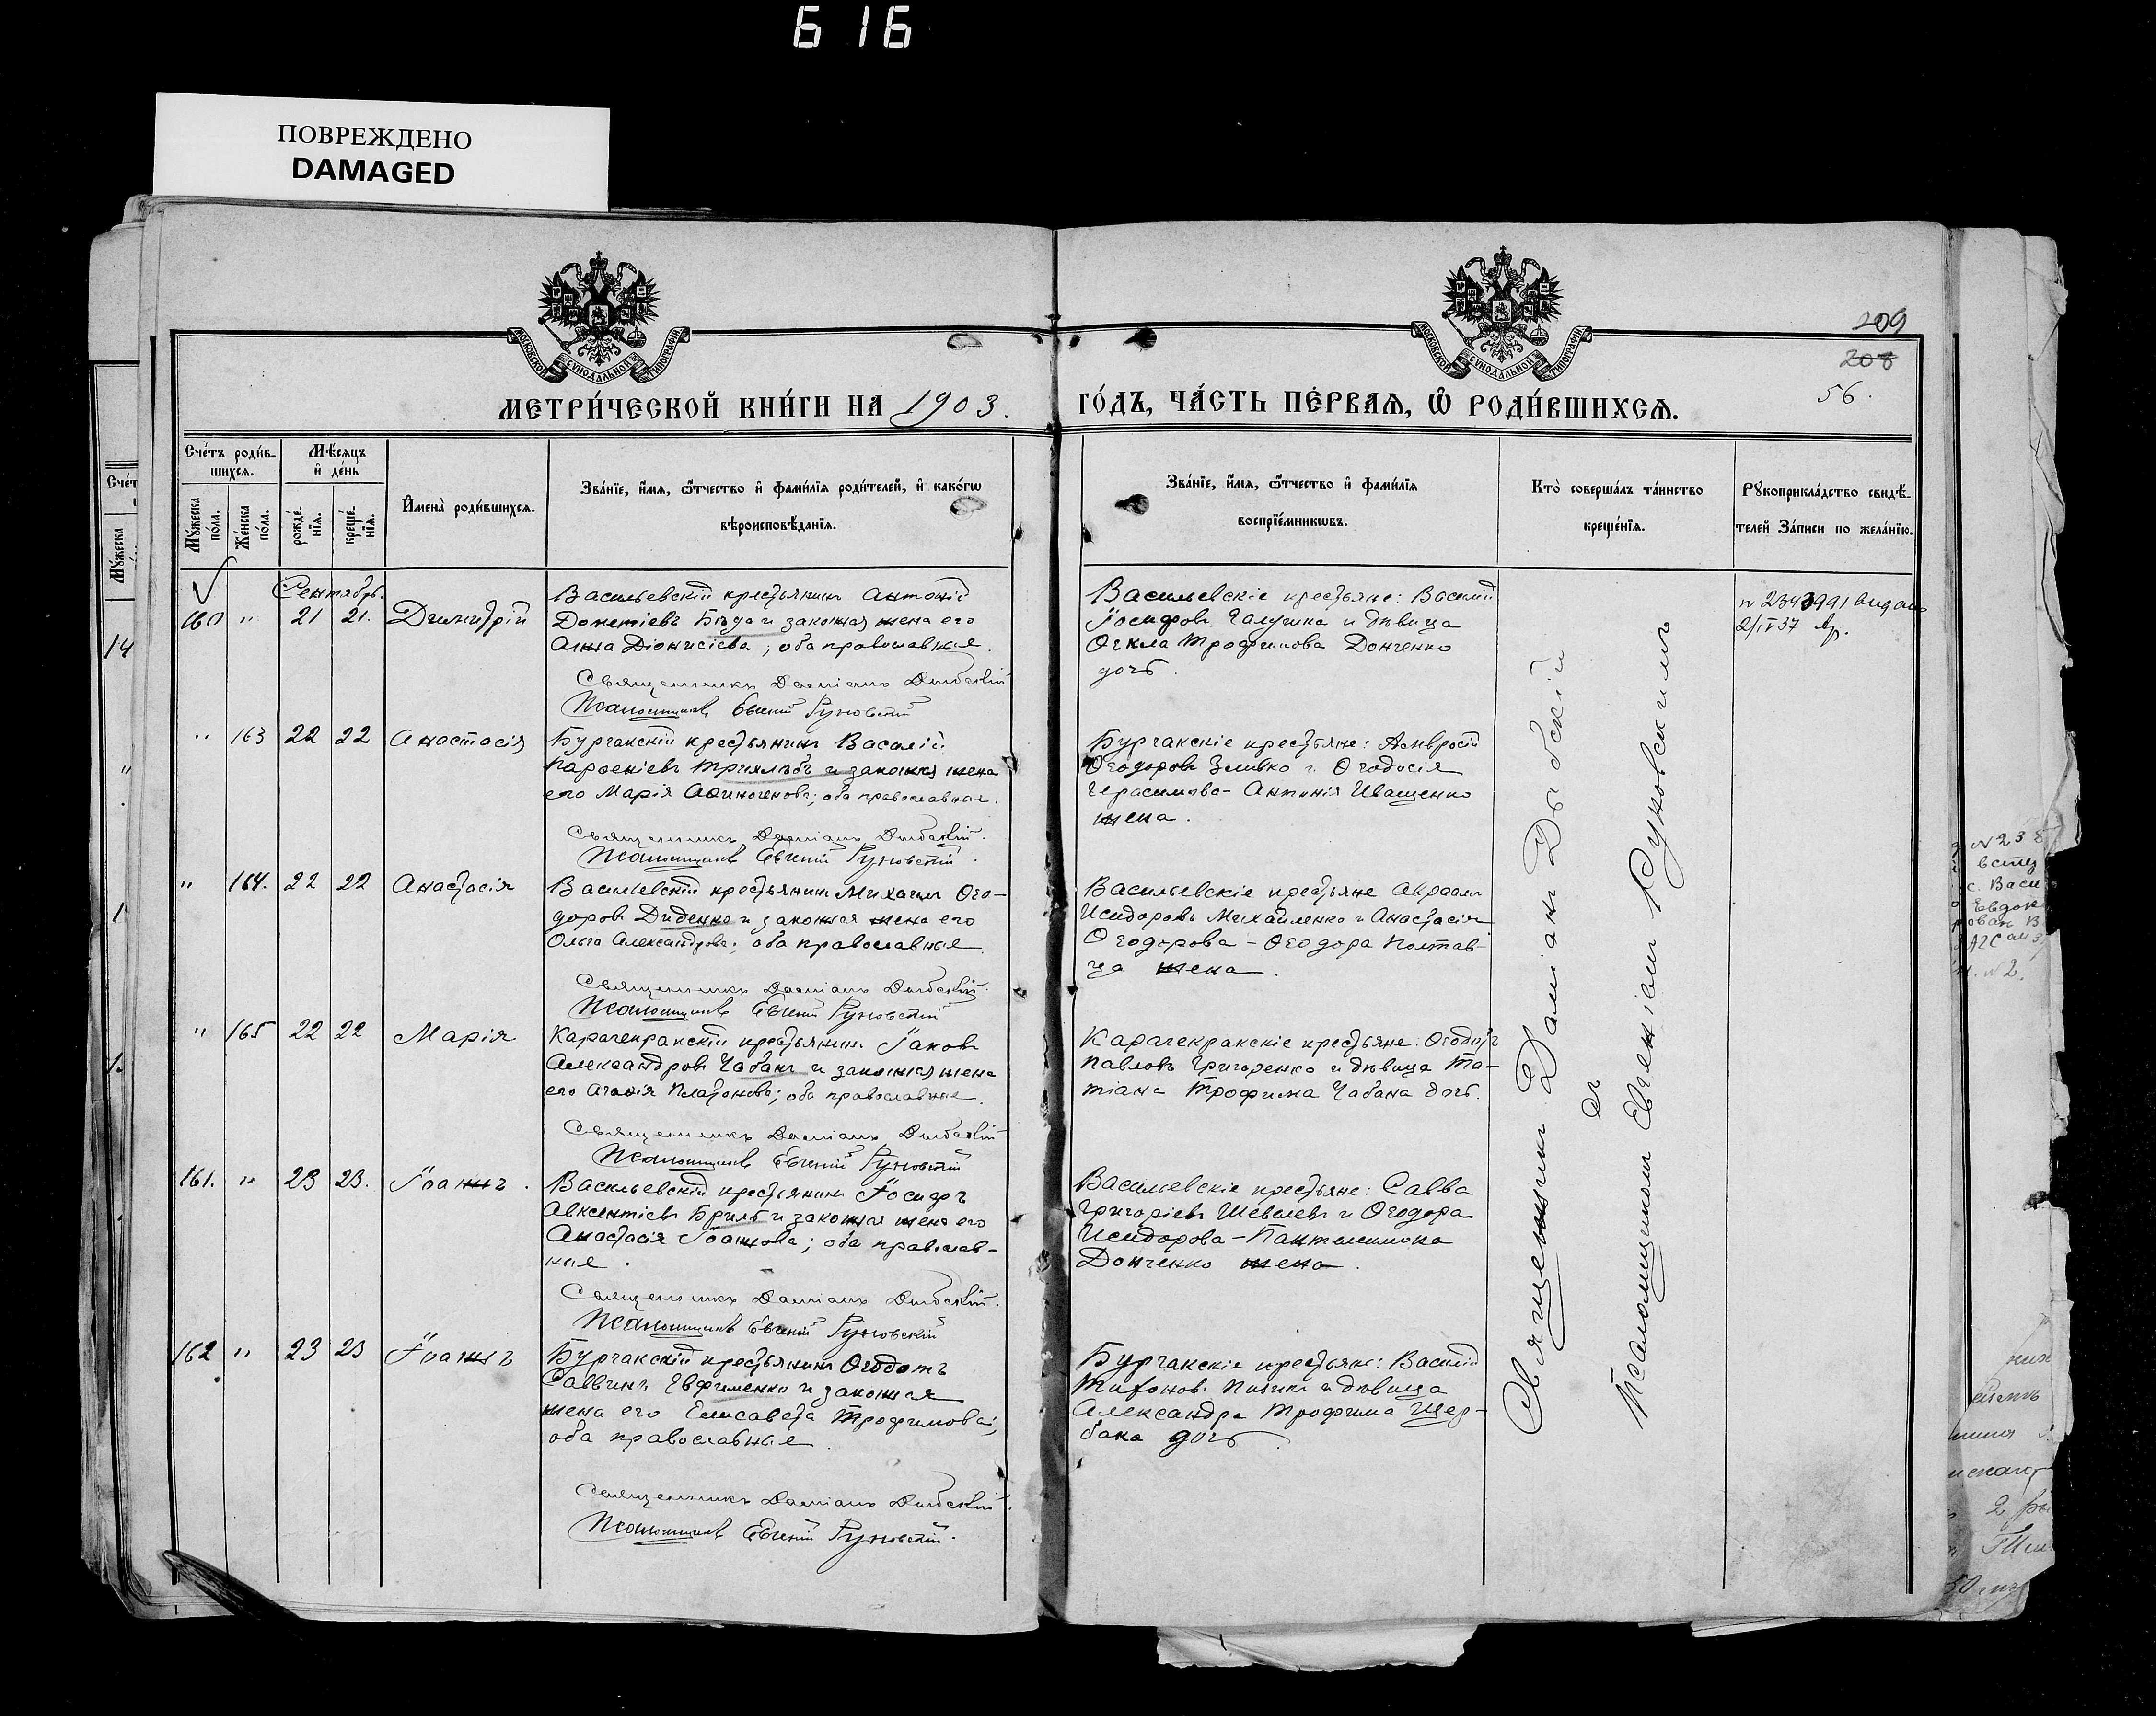 6 16
ПОВРЕЖДЕНО
DAMAGED
МОСКОВСКОЙ СѴНОДАЛЬНОЙ ТИПОГРАФІИ
МОСКОВСКОЙ СѴНОДАЛЬНОЙ ТИПОГРАФІИ
209
208
56.
МЕТРИ́ЧЕСКОЙ КНИ́ГИ НА 1903.
ГО́ДЪ, ЧА́СТЬ ПЕ́РВАѦ, Ѽ РОДИ́ВШИХСѦ.
Сче́тъ роди́в-
шихсѧ.
Му́жеска
по́ла.
Же́нска
по́ла.
Мѣ́сѧцъ
и҆ де́нь
рожде́-
нїѧ.
креще́-
нїѧ.
И҆мена̀ роди́вшихсѧ.
Зва́нїе, и҆́мѧ, ѻ҆́тчество и҆ фами́лїѧ роди́телей, и҆ како́гѡ
вѣроисповѣ́данїѧ.
Зва́нїе, и҆́мѧ, ѻ҆́тчество и҆ фами́лїѧ
воспрїе́мникѡвъ.
Кто̀ соверша́лъ та́инство
креще́нїѧ.
Рꙋкоприкла́дство свидѣ́-
телей За́писи по жела́нїю.
Сентябрь.
160 " 21 21. Димитрій
Васильевскій крестьянинъ Антоній
Дометіевъ Бѣда и законная жена его
Анна Діонисіева; оба православные.
Священникъ Даміанъ Дыбскій
Псаломщикъ Евгеній Руновскій
Васильевскіе крестьяне: Василій
Іосифовъ Галушка и дѣвица
Ѳекла Трофимова Донченко
дочь.
n 2343991
2/IV 37
" 163 22 22 Анастасія
Бурчакскій крестьянинъ Василій
Парѳеніевъ и законная жена
его Марія Аѳиногенова; оба православные.
Священникъ Даміанъ Дыбскій.
Псаломщикъ Евгеній Руновскій.
Бурчакскіе крестьяне: Амвросій
Ѳеодоровъ и Ѳеодосія
Герасимова - Антонія Иващенко
жена.
" 164. 22 22 Анастасія
Васильевскій крестьянинъ Михаилъ Ѳео-
доровъ Диденко и законная жена его
Ольга Александрова; оба православные.
Священникъ Даміанъ Дыбскій.
Псаломщикъ Евгеній Руновскій
Васильевскіе крестьяне Авраамъ
Исидоровъ Михайленко и Анастасія
Ѳеодорова - Ѳеодора Полтав-
ца жена.
" 165 22 22 Марія
Карачекракскій крестьянинъ Іаковъ
Александровъ Чабанъ и законная жена
его Агаѳія Платонова; оба православные.
Священникъ Даміанъ Дыбскій
Псаломщикъ Евгеній Руновскій
Карачекракскіе крестьяне: Ѳеодотъ
Павловъ Григоренко и дѣвица Та-
тіана Трофима Чабана дочь.
161. " 23 23. Іоаннъ.
Васильевскій крестьянинъ Іосифъ
Авксентіевъ Бриль и законная жена его
Анастасія Іоаннова; оба православ-
ные.
Священникъ Даміанъ Дыбскій.
Псаломщикъ Евгеній Руновскій
Васильевскіе крестьяне: Савва
Григоріевъ Шевелевъ и Ѳеодора
Исидорова - Пантелеимона
Донченко жена.
162 " 23 23 Іоаннъ
Бурчакскій крестьянинъ Ѳеодотъ
Саввинъ Евфименко и законная
жена его Елисавета Трофимова;
оба православные.
Священникъ Даміанъ Дыбскій.
Псаломщикъ Евгеній Руновскій.
Бурчакскіе крестьяне: Василій
Тихоновъ и дѣвица
Александра Трофима Щер-
бака дочь.
Священникъ Даміанъ Дыбскій
съ
Псаломщикомъ Евгеніемъ Руновскимъ